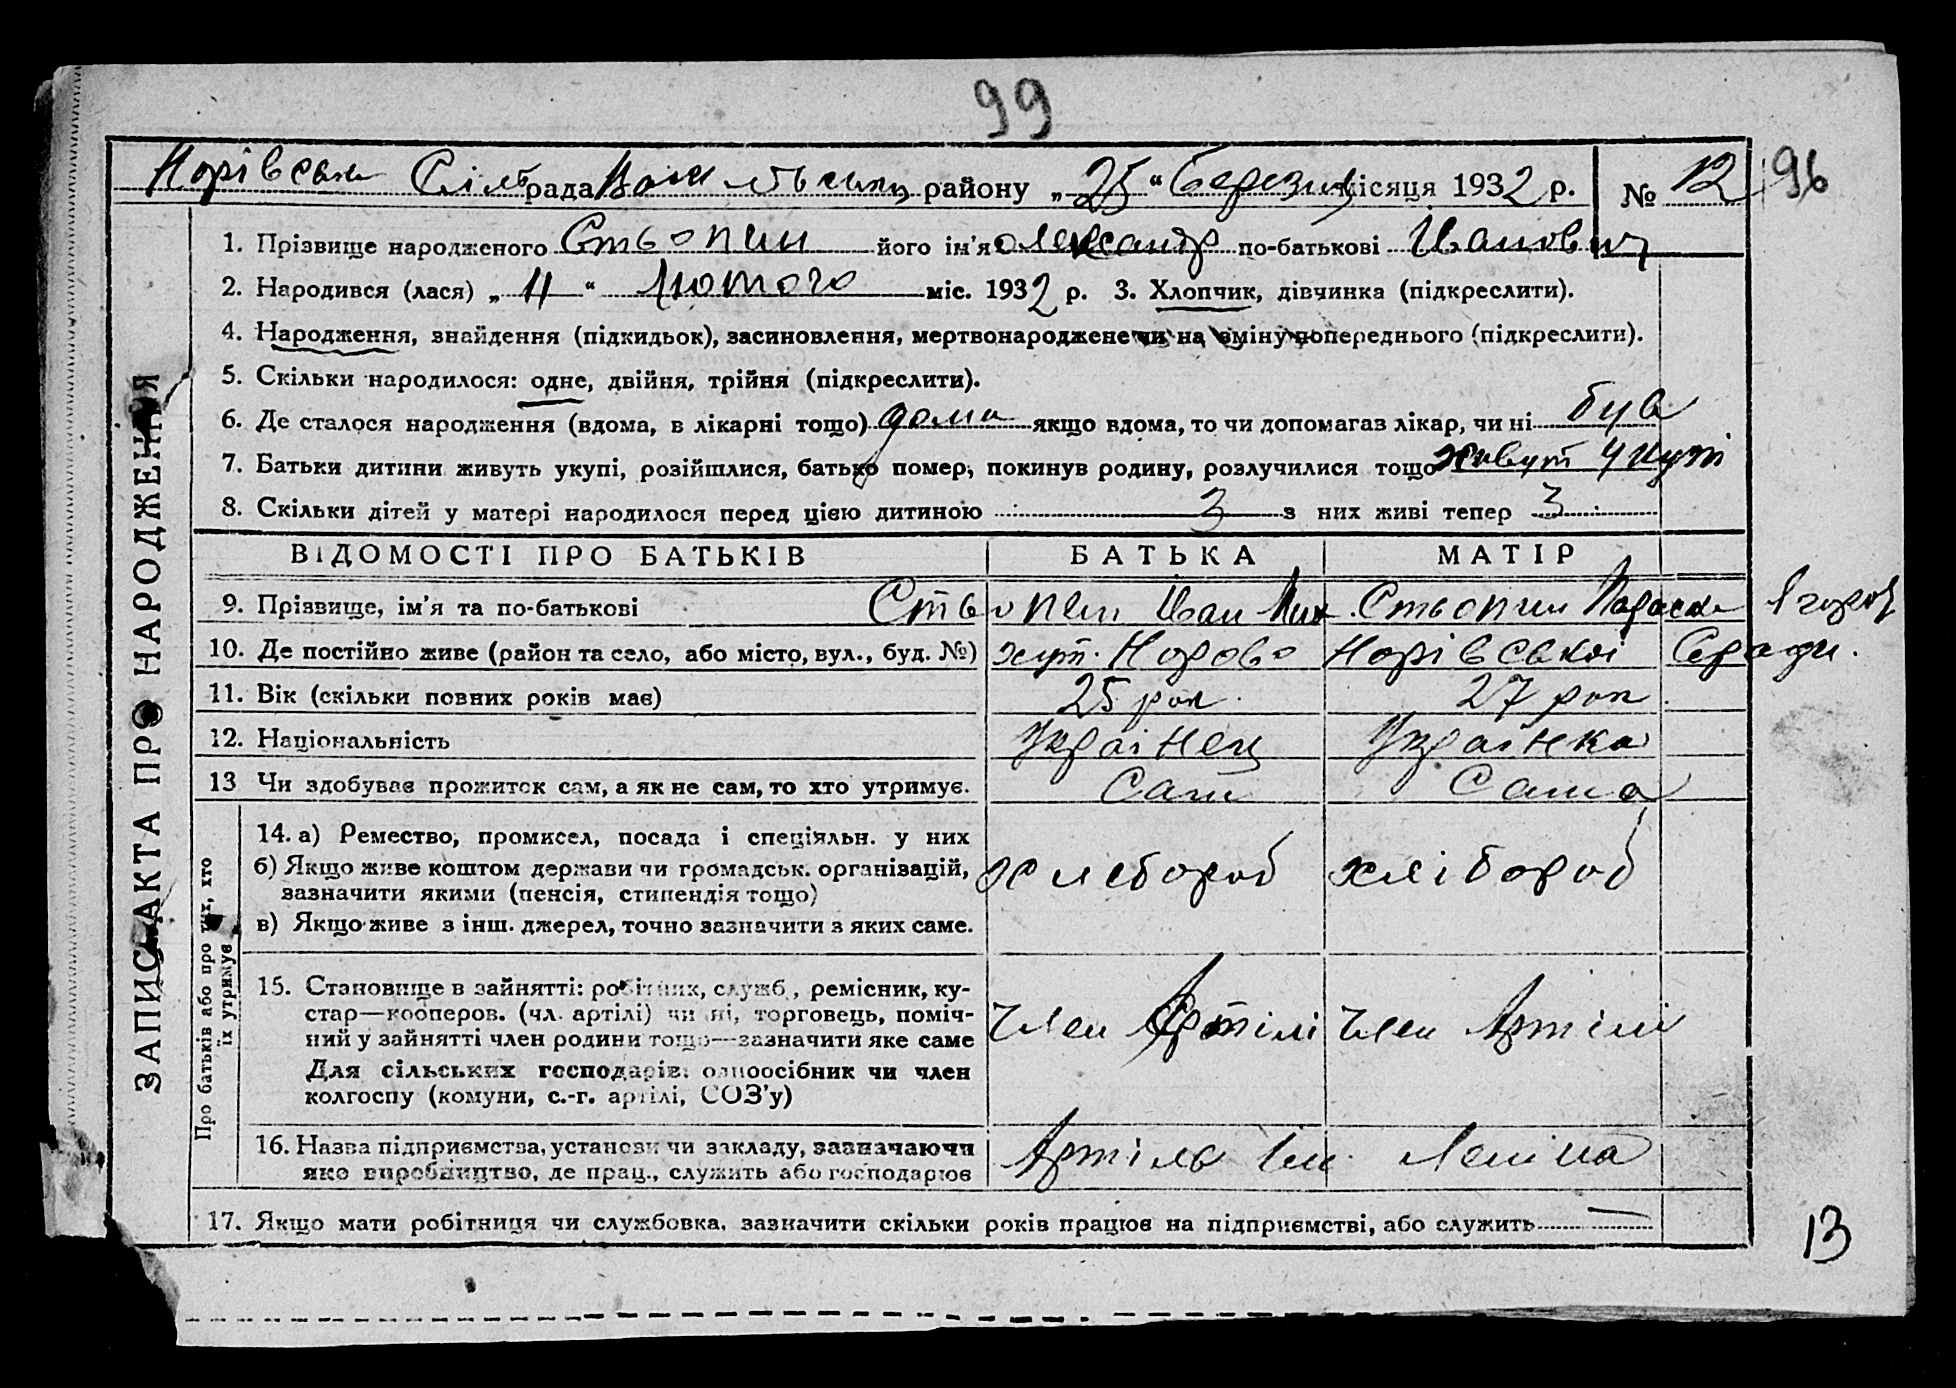 99
Норівська Сільрада району „25“ березня місяця 1932 р. № 12 96
1. Прізвище народженого Стьопин його ім'я Олександр по-батькові Иванович
2. Народився (лася) „11“ Лютого міс. 1932 р. 3. Хлопчик, дівчинка (підкреслити).
4. Народження, знайдення (підкидьок), засиновлення, мертвонароджене чи на зміну попереднього (підкреслити).
5. Скільки народилося: одне, двійня, трійня (підкреслити).
6. Де сталося народження (вдома, в лікарні тощо) дома якщо вдома, то чи допомагав лікар, чи ні був
7. Батьки дитини живуть укупі, розійшлися, батько помер, покинув родину, розлучилися тощо живут укупі
8. Скільки дітей у матері народилося перед цією дитиною 3 з них живі тепер 3
ЗАПИС АКТА ПРО НАРОДЖЕННЯ
ВІДОМОСТІ ПРО БАТЬКІВ БАТЬКА МАТІР
9. Прізвище, ім'я та по-батькові Стьопин Иван Мих. Стьопин Параска
10. Де постійно живе (район та село, або місто, вул., буд. №) хут. Норово Норівської С/ради.
11. Вік (скільки повних років має) 25 рок. 27 рок
12. Національність Українец Українка
13 Чи здобуває прожиток сам, а як не сам, то хто утримує. Сам Сама
Про батьків або про тих, хто їх утримує
14. а) Ремество, промисел, посада і спеціяльн. у них
б) Якщо живе коштом держави чи громадськ. організацій, хлебороб хлібороб
зазначити якими (пенсія, стипендія тощо)
в) Якщо живе з інш. джерел, точно зазначити з яких саме.
15. Становище в зайнятті: робітник, служб., ремісник, ку-
стар—кооперов. (чл. артілі) чи ні, торговець, поміч- Член Артілі Член Артілі
ний у зайнятті член родини тощо—зазначити яке саме
Для сільських господарів: одноосібник чи член
колгоспу (комуни, с.-г. артілі, СОЗ'у)
16. Назва підприємства, установи чи закладу, зазначаючи Артіль Ім. Леніна
яке виробництво, де прац., служить або господарює
17. Якщо мати робітниця чи службовка, зазначити скільки років працює на підприємстві, або служить —
13